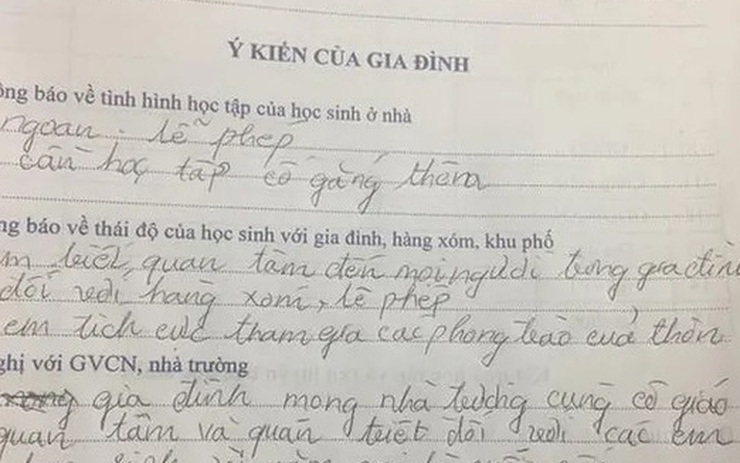 Ý KIẾN CỦA GIA ĐÌNH
ông báo về tình hình học tập của học sinh ở nhà
ngoan. lễ phép
cần học tập cố gắng thêm
ng báo về thái độ của học sinh với gia đình, hàng xóm, khu phố
em biết, quan tâm đến mọi người trong gia đình
đối với hàng xóm, lễ phép
em tích cực tham gia các phong trào của thôn
ghị với GVCN, nhà trường
gia đình mong nhà trường cùng cô giáo
quan tâm và quán triệt đối với các em